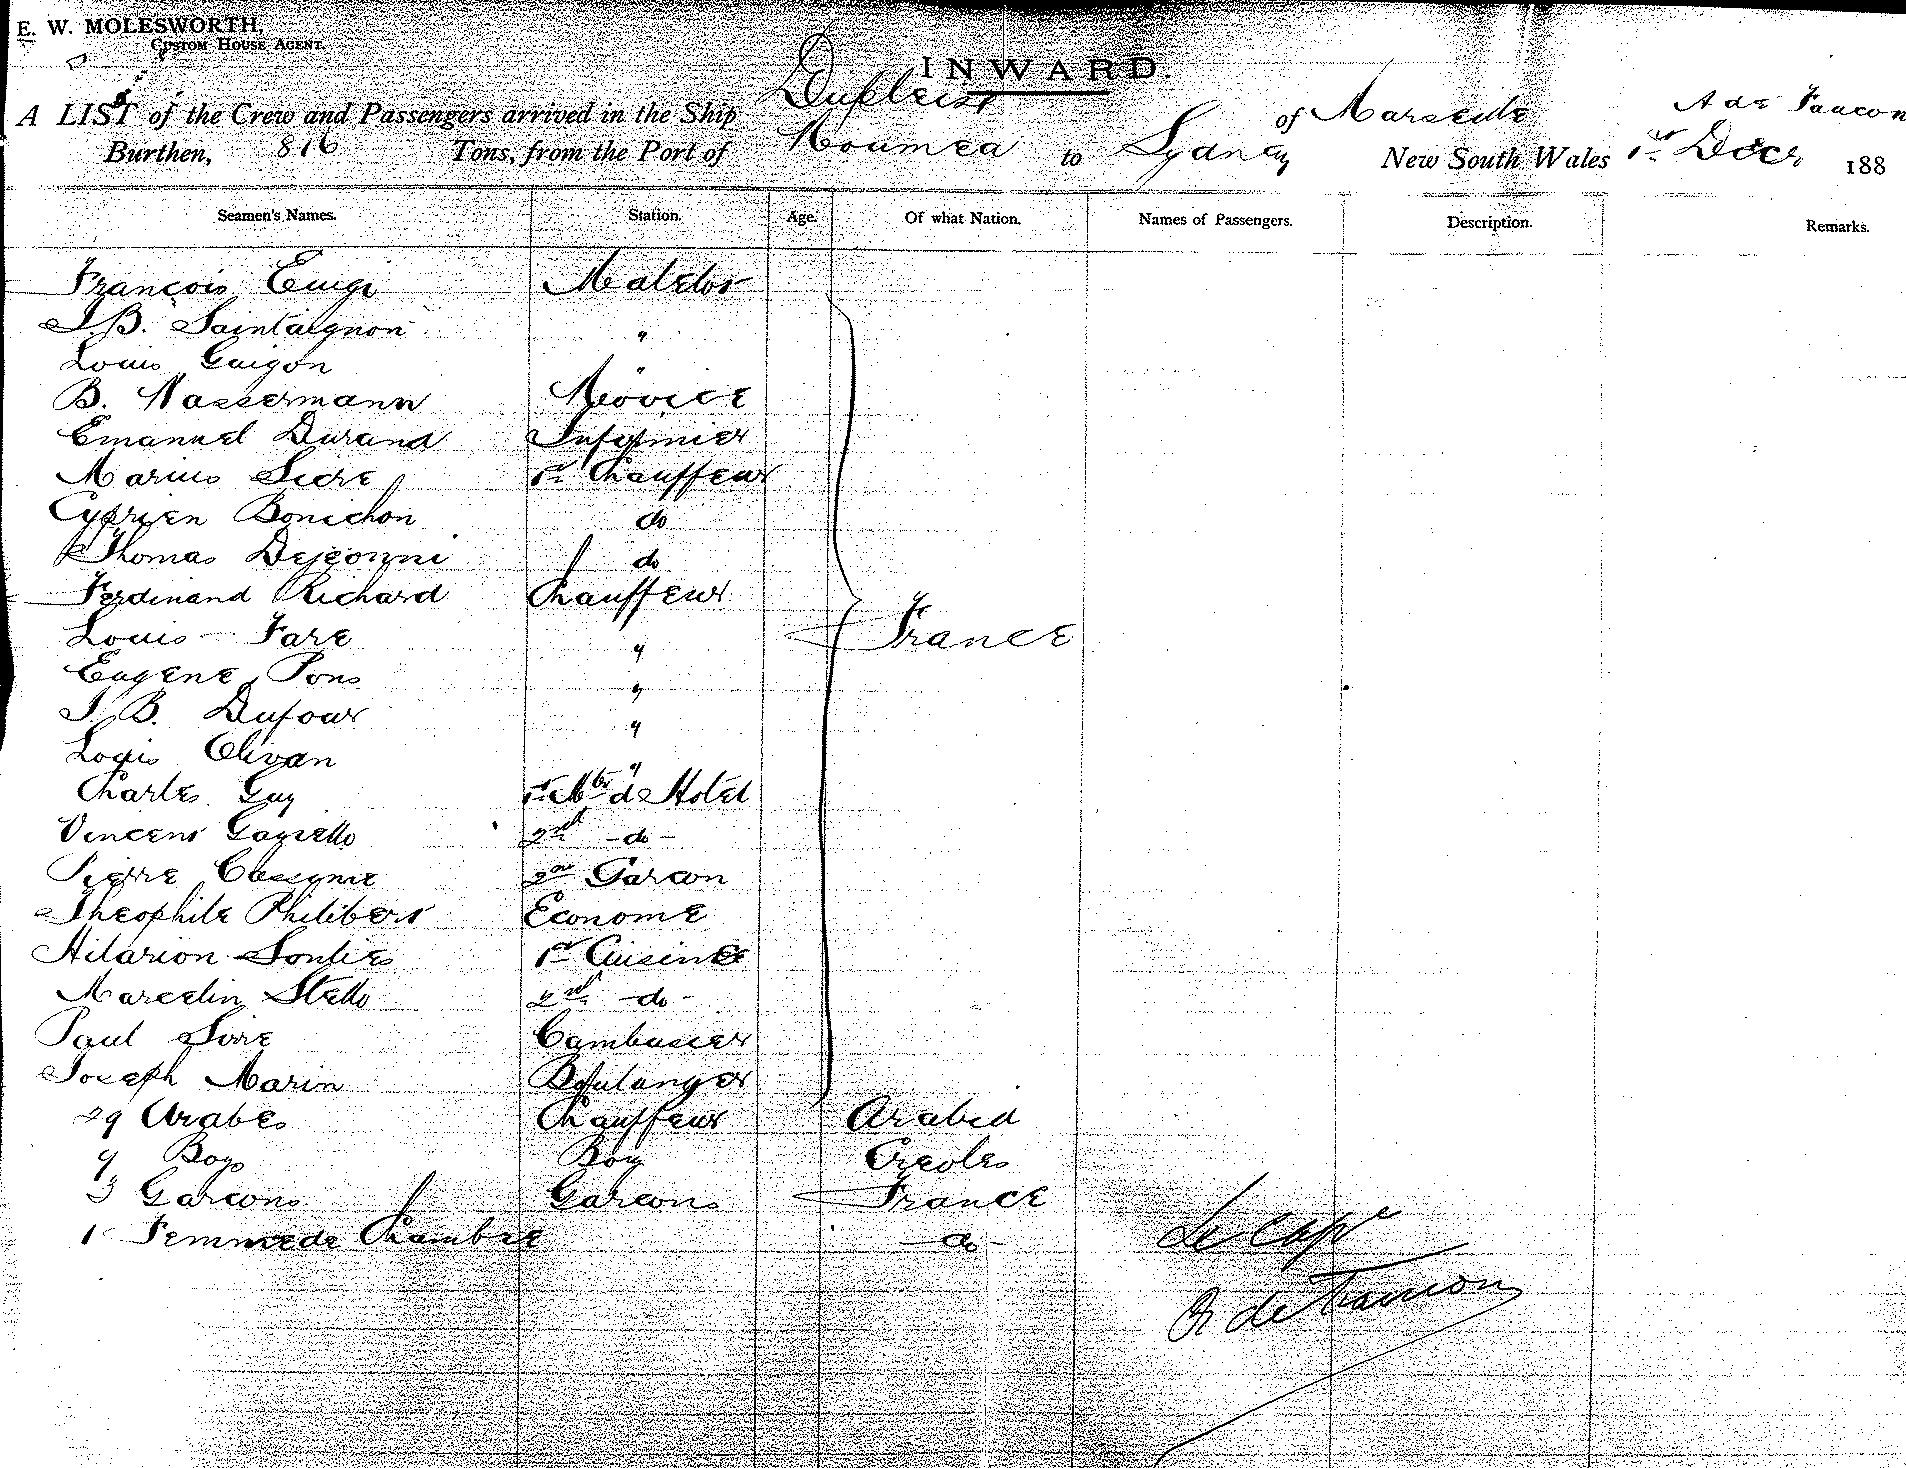 E. W. MOLESWORTH,
CUSTOM HOUSE AGENT.
INWARD.
A LIST of the Crew and Passengers arrived in the Ship Dupleix of Marseille A de Faucon
Burthen, 816 Tons, from the Port of Noumea to Sydney New South Wales 1st Decr 188
Seamen's Names. Station. Age. Of what Nation. Names of Passengers. Description. Remarks.
François Luigi Matelot
J. B. Saintaignon "
Louis Guigon "
B. Wassermann Novice
Emanuel Durand Infirmier
Marius Sicre 1er Chauffeur
Cyprien Bonichon do
Thomas do
Ferdinand Richard Chauffeur
Louis Fare " France
Eugene Pons "
J. B. Dufour "
Louis Olivan "
Charles Guy 1er Mtre d Hotel
Vincent 2nd - do -
Pierre 2nd Garcon
Theophile Philibert Econome
Hilarion 1er Cuisinier
Marcelin Stello 2nd - do -
Paul Cambusier
Joseph Marin Boulanger
29 Arabes Chauffeur Arabia
9 Boys Boy Creoles
3 Garcons Garcons France
1 Femme de Chambre - do -
Le Cape
A de Faucon